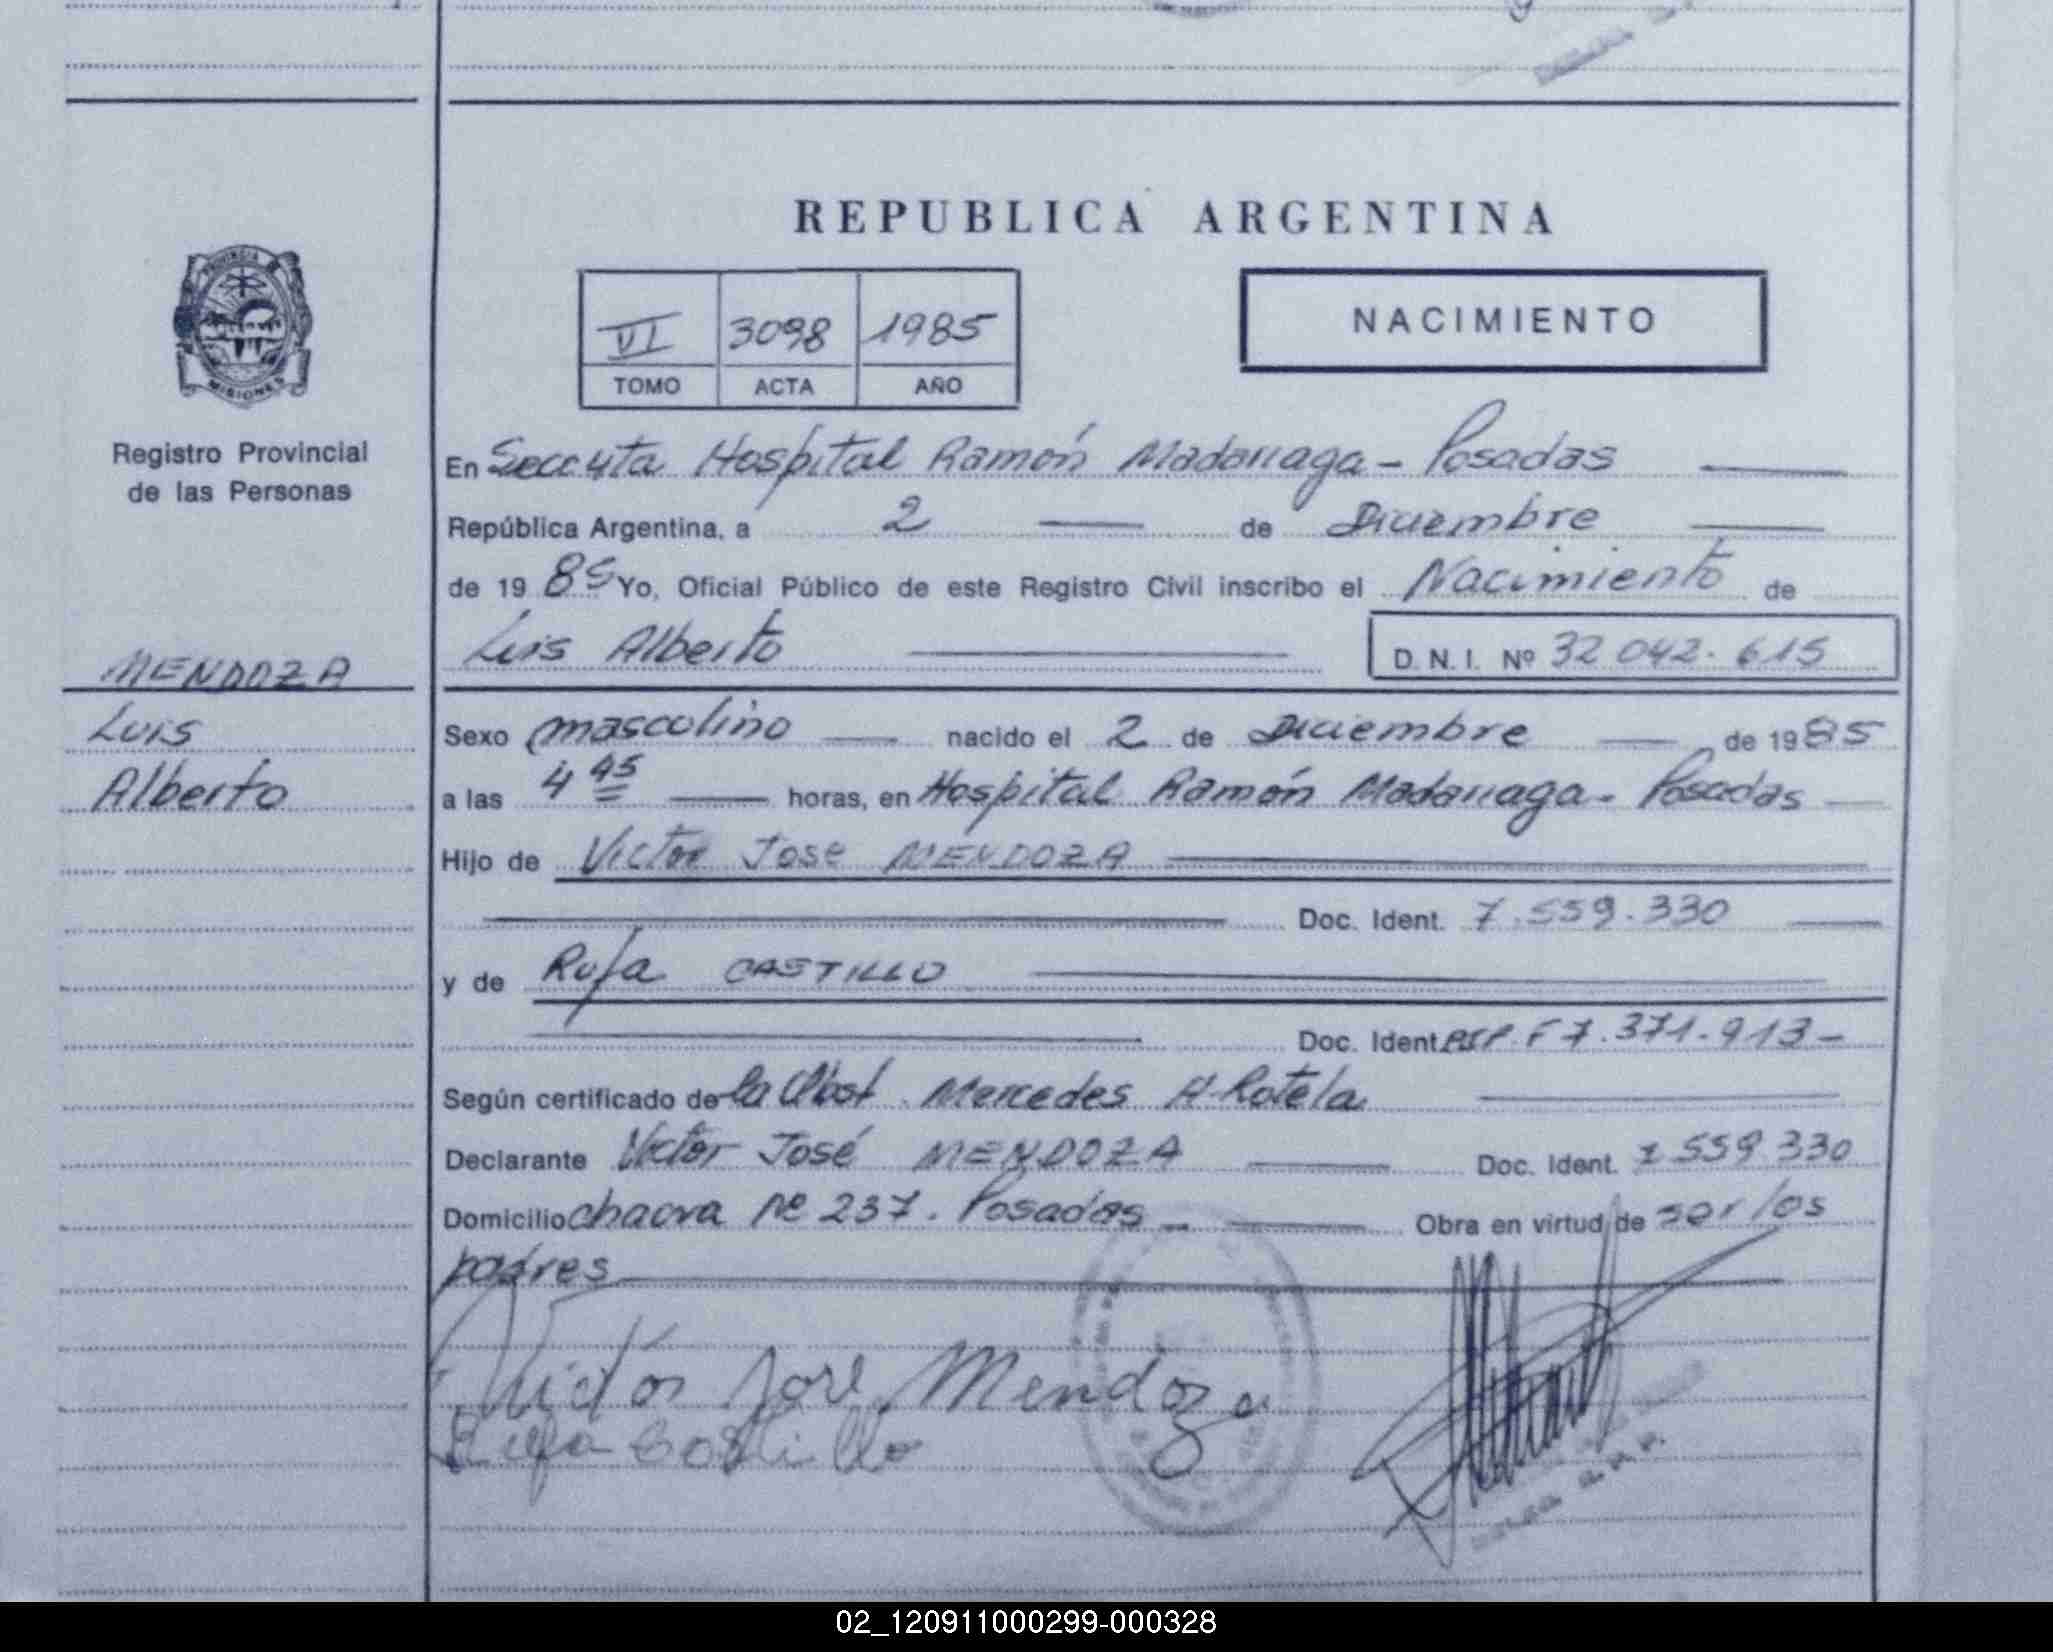 REPUBLICA ARGENTINA
VI 3098 1985
TOMO ACTA AÑO
NACIMIENTO
PROVINCIA D
MISIONES
Registro Provincial
de las Personas
MENDOZA
Luis
Alberto
En Secc 4ta Hospital Ramón Madariaga - Posadas
República Argentina, a 2 de Diciembre
de 19 85 Yo, Oficial Público de este Registro Civil inscribo el Nacimiento de
Luis Alberto D.N.I. Nº 32 042.615
Sexo masculino nacido el 2 de Diciembre de 1985
a las 4 45 horas, en Hospital Ramón Madariaga - Posadas
Hijo de Victor Jose MENDOZA
Doc. Ident. 7.559.330
y de Rufa CASTILLO
Doc. Ident. F 7.371.913-
Según certificado de la Obst. Mercedes H. Rotela
Declarante Victor José MENDOZA Doc. Ident. 7 559 330
Domicilio chacra Nº 237. Posadas - Obra en virtud de ser los
padres
Victor Jose Mendoza
Rufa Castillo
02_120911000299-000328